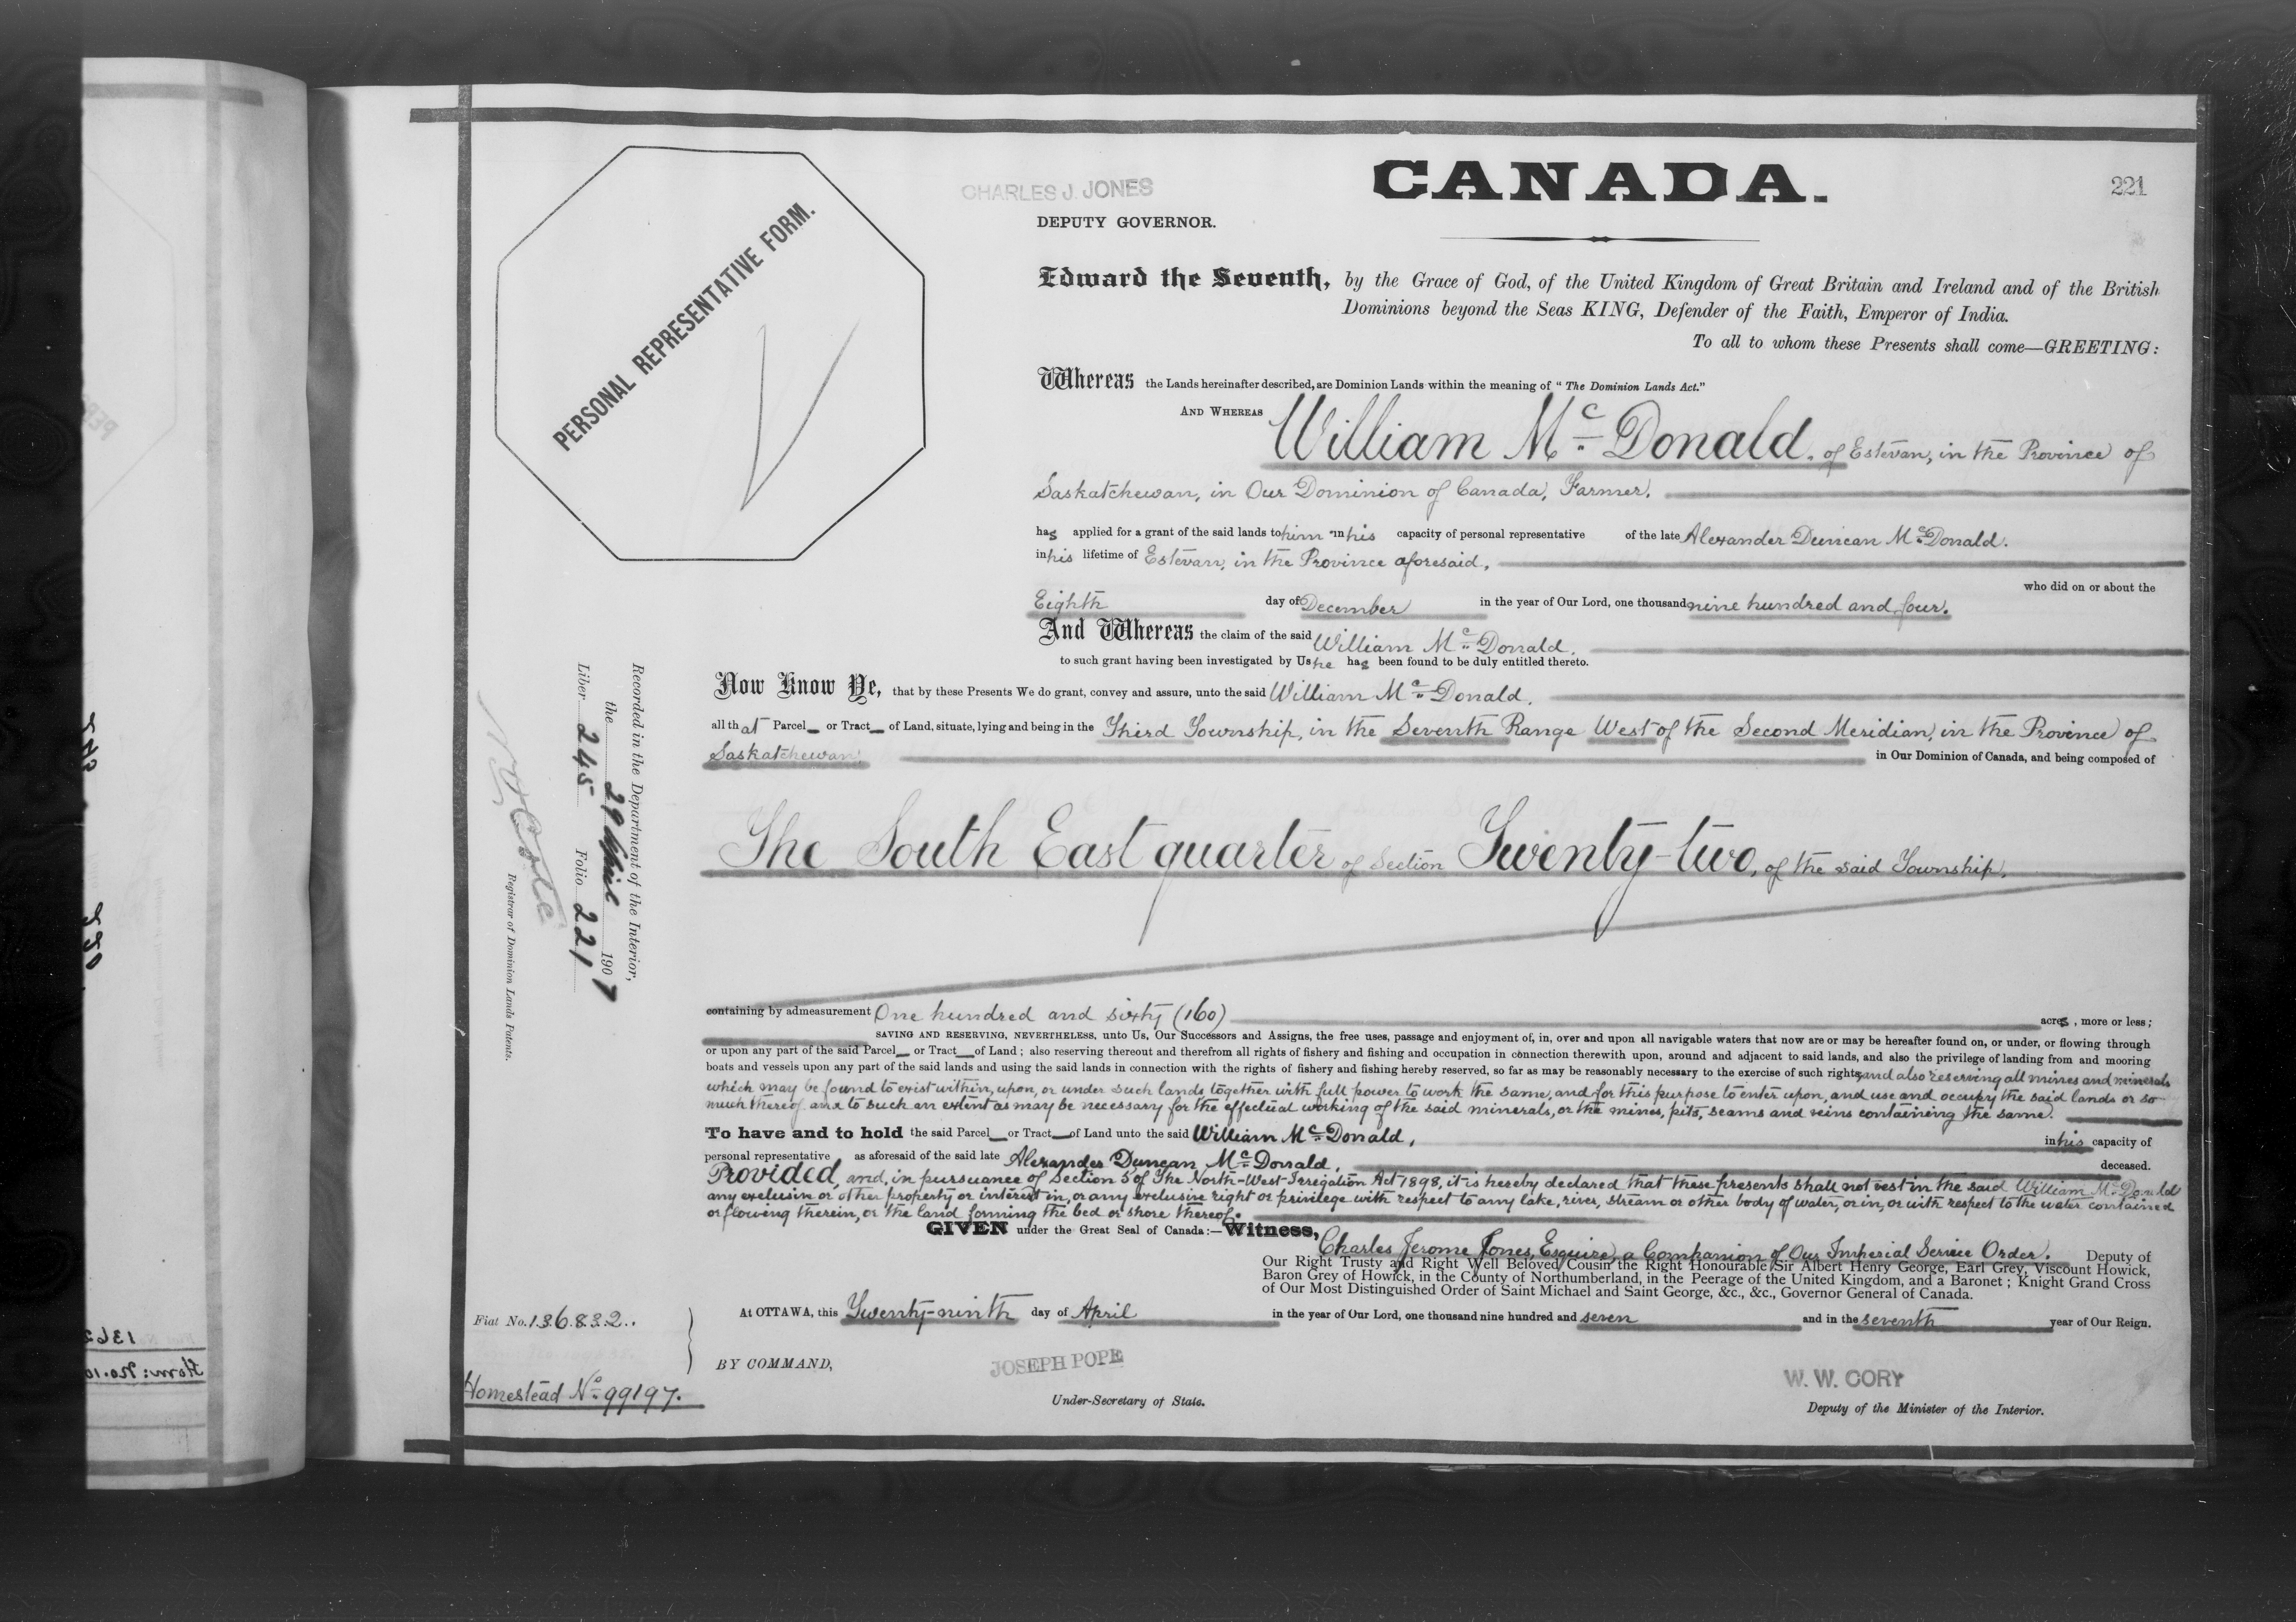 CHARLES J. JONES
DEPUTY GOVERNOR.
CANADA.
221
PERSONAL REPRESENTATIVE FORM.
Edward the Seventh, by the Grace of God, of the United Kingdom of Great Britain and Ireland and of the British
Dominions beyond the Seas KING, Defender of the Faith, Emperor of India.
To all to whom these Presents shall come—GREETING:
Whereas the Lands hereinafter described, are Dominion Lands within the meaning of "The Dominion Lands Act."
AND WHEREAS William Mc Donald, of Estevan, in the Province of
Saskatchewan, in Our Dominion of Canada, Farmer,
has applied for a grant of the said lands to him in his capacity of personal representative of the late Alexander Duncan McDonald.
in his lifetime of Estevan, in the Province aforesaid,
who did on or about the
Eighth day of December in the year of Our Lord, one thousand nine hundred and four.
And Whereas the claim of the said William Mc Donald,
to such grant having been investigated by Us he has been found to be duly entitled thereto.
Now Know Ye, that by these Presents We do grant, convey and assure, unto the said William Mc Donald,
all that Parcel or Tract of Land, situate, lying and being in the Third Township, in the Seventh Range West of the Second Meridian, in the Province of
Saskatchewan, in Our Dominion of Canada, and being composed of
The South East quarter of Section Twenty-two, of the said Township,
containing by admeasurement One hundred and sixty (160) acres, more or less;
SAVING AND RESERVING, NEVERTHELESS, unto Us, Our Successors and Assigns, the free uses, passage and enjoyment of, in, over and upon all navigable waters that now are or may be hereafter found on, or under, or flowing through
or upon any part of the said Parcel or Tract of Land; also reserving thereout and therefrom all rights of fishery and fishing and occupation in connection therewith upon, around and adjacent to said lands, and also the privilege of landing from and mooring
boats and vessels upon any part of the said lands and using the said lands in connection with the rights of fishery and fishing hereby reserved, so far as may be reasonably necessary to the exercise of such rights, and also reserving all mines and minerals
which may be found to exist within, upon, or under such lands together with full power to work the same, and for this purpose to enter upon, and use and occupy the said lands or so
much thereof and to such an extent as may be necessary for the effectual working of the said minerals, or the mines, pits, seams and veins containing the same.
To have and to hold the said Parcel or Tract of Land unto the said William Mc Donald, in his capacity of
personal representative as aforesaid of the said late Alexander Duncan Mc Donald, deceased.
Provided, and, in pursuance of Section 5 of The North-West Irrigation Act 1898, it is hereby declared that these presents shall not vest in the said William Mc Donald
any exclusive or other property or interest in, or any exclusive right or privilege with respect to any lake, river, stream or other body of water, or in, or with respect to the water contained
or flowing therein, or the land forming the bed or shore thereof.
GIVEN under the Great Seal of Canada:—Witness,
Charles Jerome Jones, Esquire, a Companion of Our Imperial Service Order. Deputy of
Our Right Trusty and Right Well Beloved Cousin the Right Honourable Sir Albert Henry George, Earl Grey, Viscount Howick,
Baron Grey of Howick, in the County of Northumberland, in the Peerage of the United Kingdom, and a Baronet; Knight Grand Cross
of Our Most Distinguished Order of Saint Michael and Saint George, &c., &c., Governor General of Canada.
At OTTAWA, this Twenty-ninth day of April in the year of Our Lord, one thousand nine hundred and seven and in the seventh year of Our Reign.
BY COMMAND,
JOSEPH POPE
Under-Secretary of State.
W. W. CORY
Deputy of the Minister of the Interior.
Recorded in the Department of the Interior,
the 29 April 1907
Liber 245 Folio 221
Registrar of Dominion Lands Patents.
Fiat No. 136832.
Homestead No. 99197.